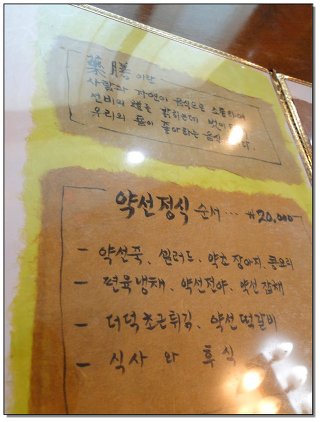 藥膳 이란
사람과 자연이 음식으로 소통하여
선비의 道를 밝히는데 벗이
우리의 몸이 좋아하는 음식
약선정식 순서 ... ₩20,000
- 약선죽, 샐러드, 약초장아찌, 콩요리
- 편육냉채, 약선전야, 약선잡채
- 더덕초근튀김, 약선떡갈비
- 식사 와 후식